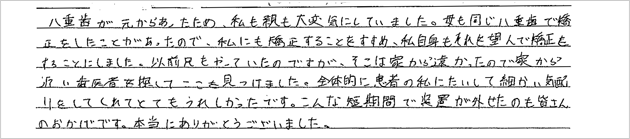 八重歯が元からあったため、私も親も大変気にしていました。母も同じ八重歯で矯
正をしたことがあったので、私にも矯正することをすすめ、私自身もそれを望んで矯正を
することにしました。以前兄もやっていたのですが、そこは家から遠かったので家から
近い歯医者を探してここを見つけました。全体的に患者の私にたいして細かい気配
りをしてくれてとてもうれしかったです。こんな短期間で装置が外せたのも皆さん
のおかげです。本当にありがとうございました。